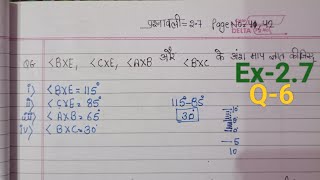 प्रश्नावली = 2.7 Page No = 41, 42
DELTA
Q6 <BXE, <CXE, <AXB और <BXC के अंश माप ज्ञात कीजिए
Ex-2.7
Q-6
i) <BXE = 115°
ii) <CXE = 85°
iii) <AXB = 65°
iv) <BXC = 30°
115-85°
30°
5
10